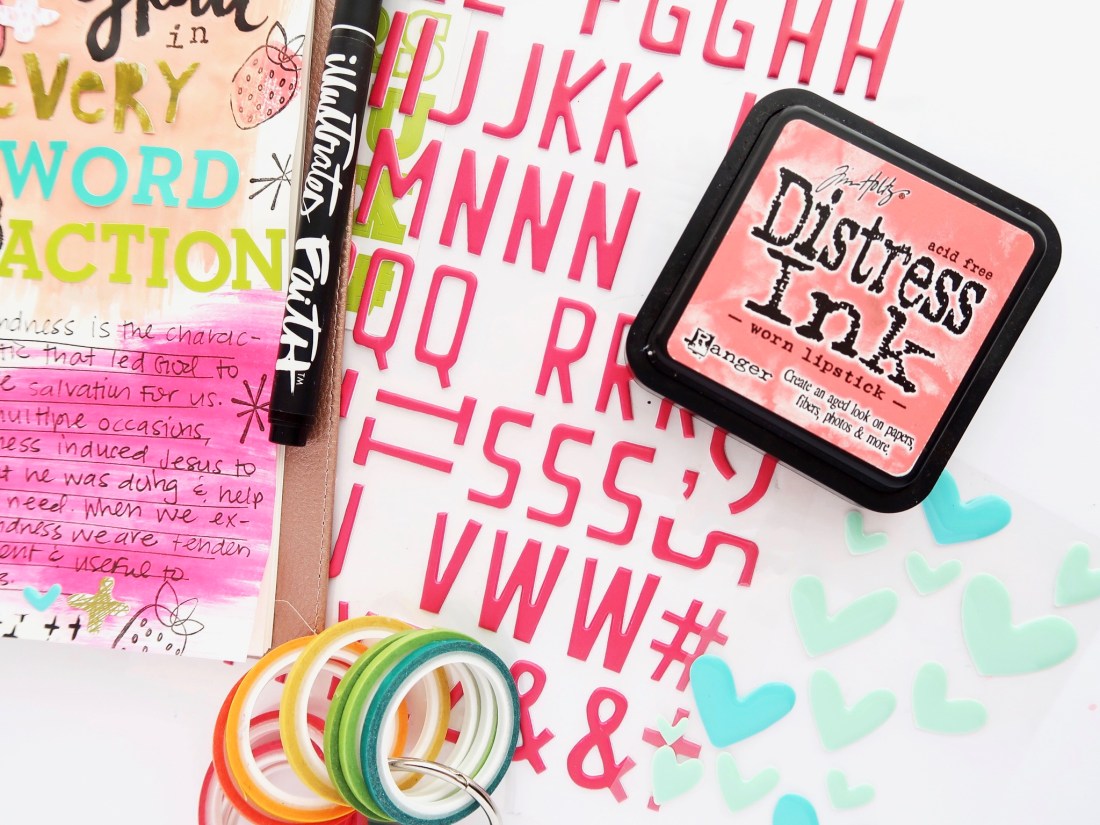 in
EVERY
WORD
ACTION
ndness is the charac-
tic that led God to
e salvation for us.
multiple occasions,
ness induced Jesus to
t he was dung & help
need. When we ex-
ndness we are tenden
ent & useful to
s.
illustrated FAITH™
FGGHH
IJJKK
MNNNN
QQ RRR
TTSSS,
S
VWWW
#
&&
Tim Holtz®
Distress
Ink
acid free
— worn lipstick —
Ranger
Create an aged look on papers,
fibers, photos & more.